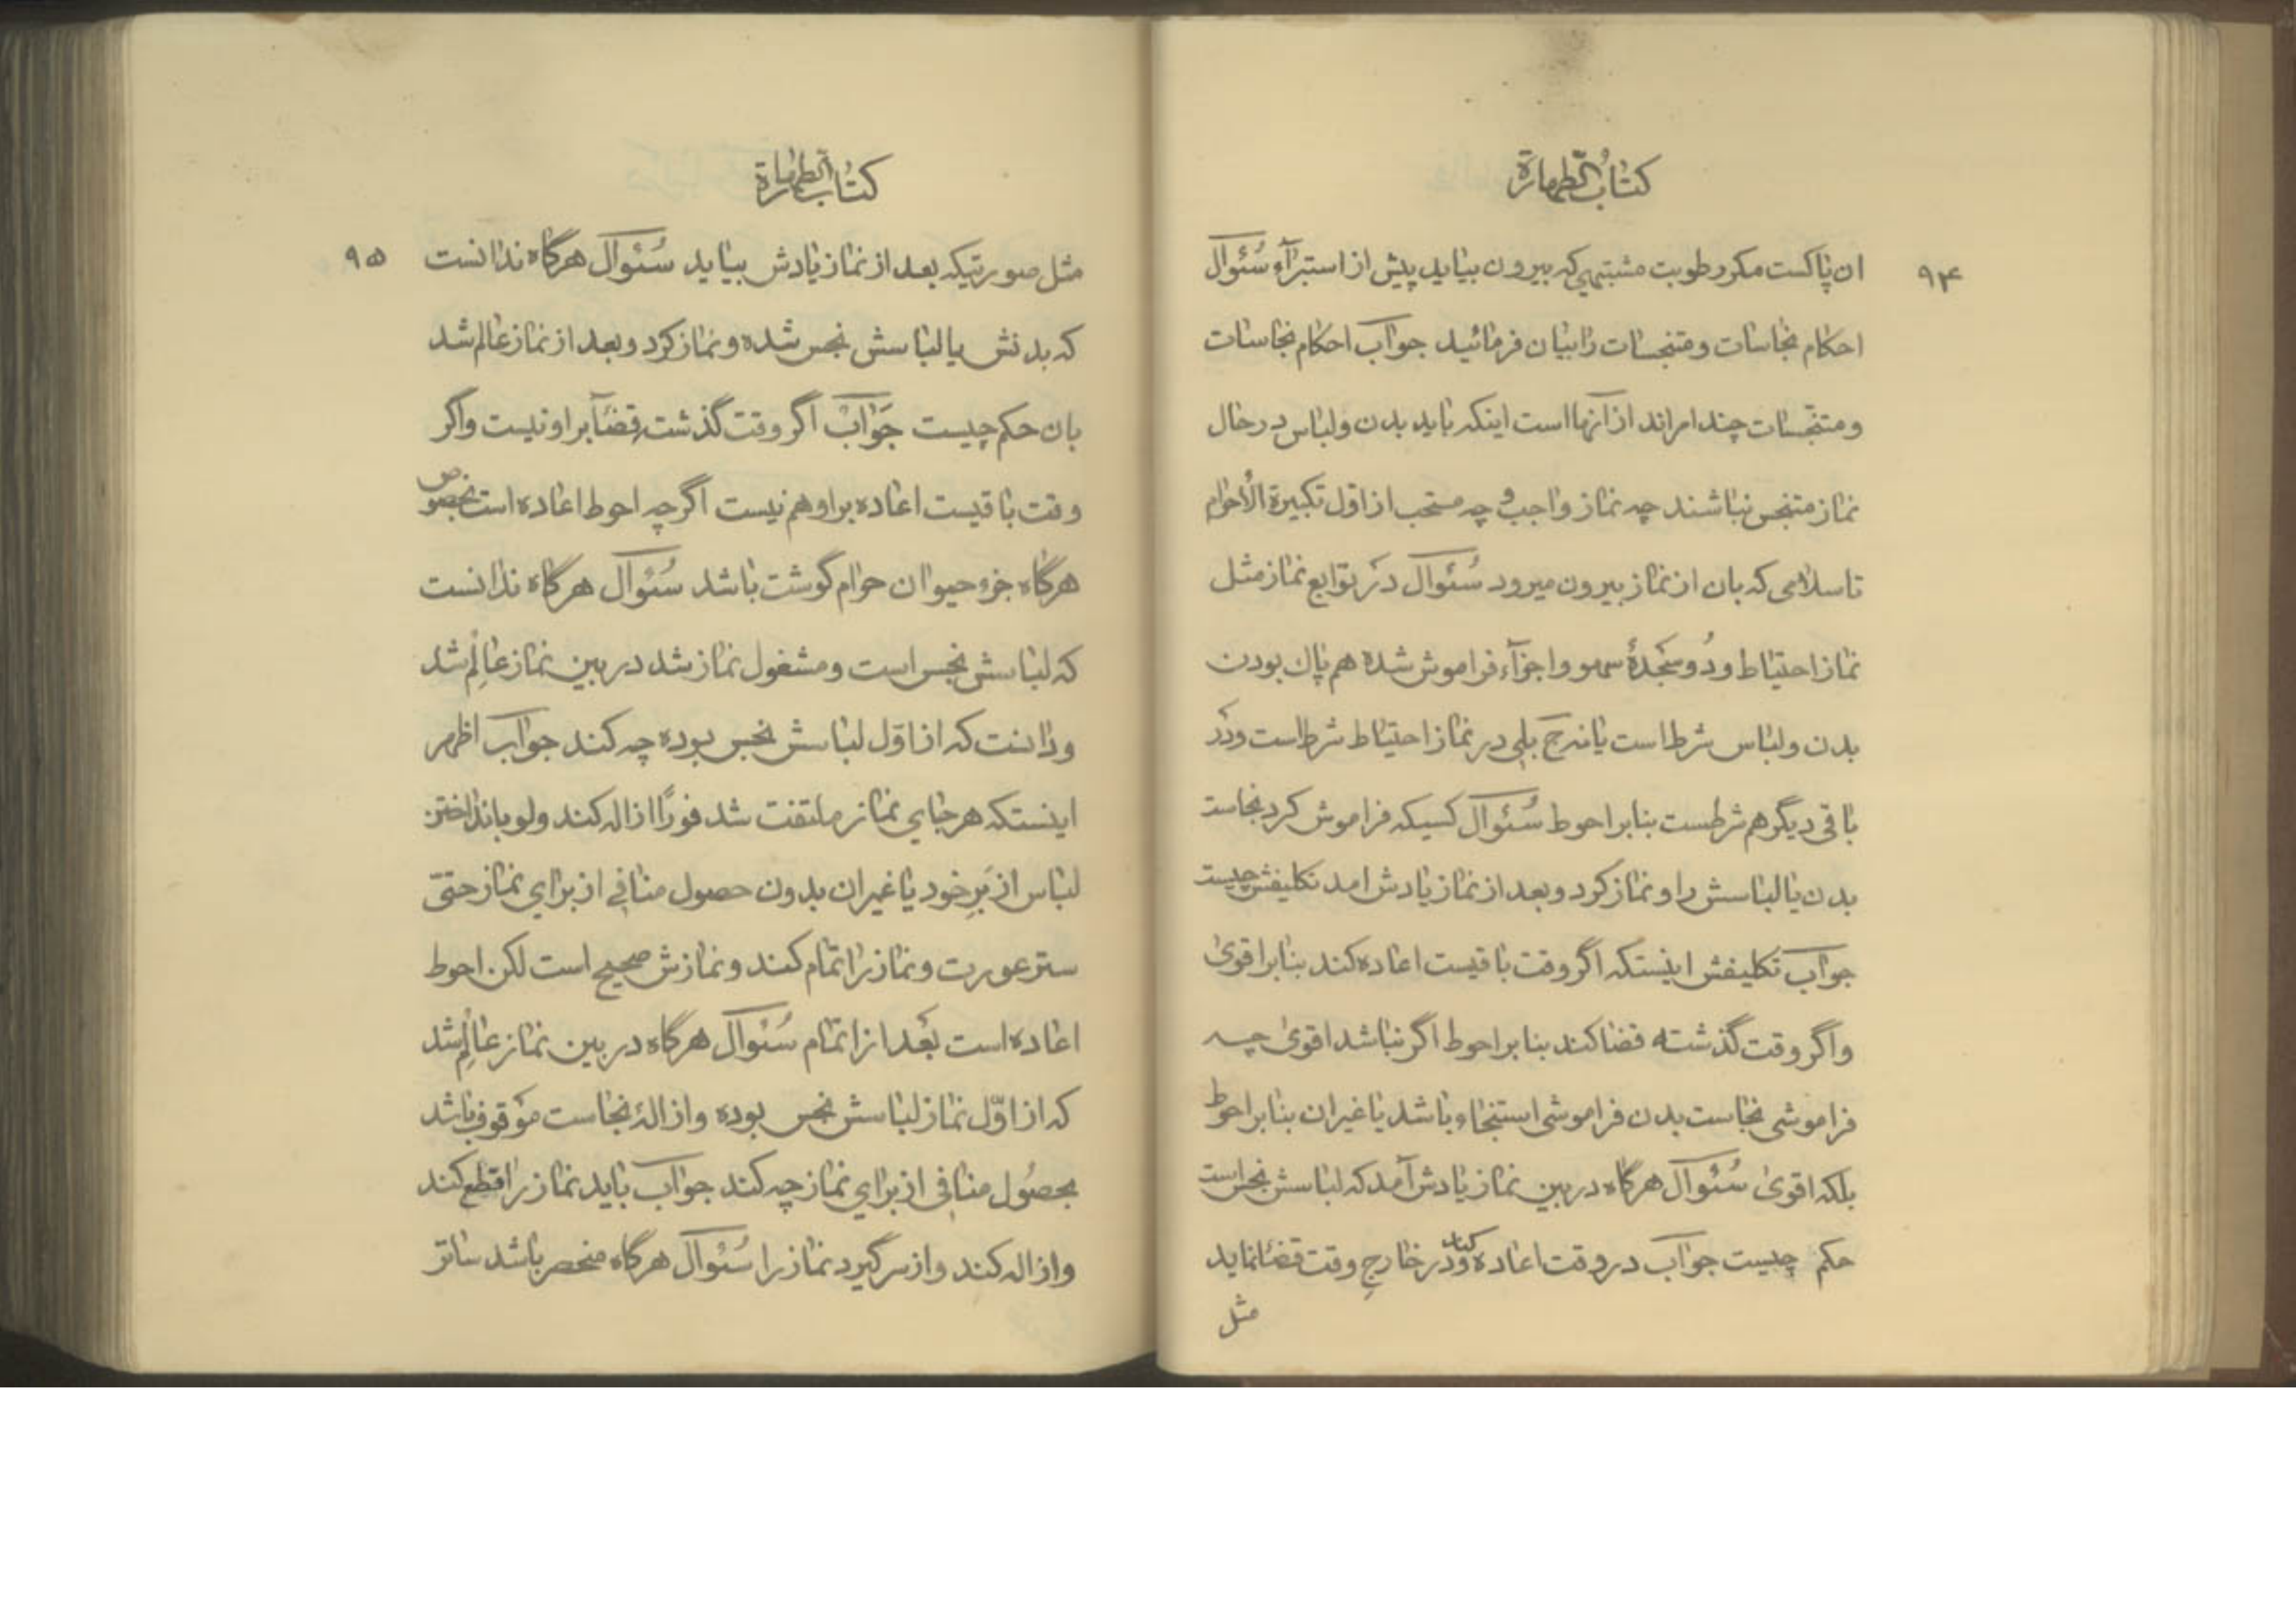 كتاب الطهارة
٩۴
ان پاكست مكر رطوبت مشتبهي كه بيرون بيايد پيش از استبراء سُئوال
احكام نجاسات و متنجسات را بيان فرمائيد جواب احكام نجاسات
و متنجّسات چند امراند از آنها است اينكه بايد بدن و لباس در حال
نماز متنجس نباشند چه نماز واجب و چه مستحب از اول تكبيرة الأحرام
تا سلامى كه بان از نماز بيرون ميرود سُئوال در توابع نماز مثل
نماز احتياط و دُو سَجدۀ سهو و اجزآء فراموش شده هم پاك بودن
بدن و لباس شرط است يا نه ج بلى در نماز احتياط شرط است و در
باقى ديگر هم شرطست بنابر احوط سُئوال كسيكه فراموش كرد نجاست
بدن يا لباسش را و نماز كرد و بعد از نماز يادش امد تكليفش چيست
جواب تكليفش اينستكه اگر وقت باقيست اعاده كند بنابر اقوىٰ
و اگر وقت گذشته قضا كند بنابر احوط اگر نباشد اقوىٰ چه
فراموشى نجاست بدن فراموشى استنجاء باشد يا غير ان بنابر احوط
بلكه اقوىٰ سُئوال هرگاه در بين نماز يادش آمد كه لباسش نجس است
حكم چيست جواب در وقت اعاده كند و در خارجِ وقت قضا نمايد
مثل
كتاب الطهارة
٩۵
مثل صورتيكه بعد از نماز يادش بيايد سُئوال هرگاه ندانست
كه بدنش يا لباسش نجس شده و نماز كرد و بعد از نماز عالم شد
بان حكم چيست جَواب اگر وقت گذشته قضآ بر او نيست و اگر
وقت باقيست اعاده بر او هم نيست اگر چه احوط اعاده است بخصوص
هرگاه جزء حيوان حرام گوشت باشد سُئوال هرگاه ندانست
كه لباسش نجس است و مشغول نماز شد در بين نماز عالِم شد
و دانست كه از اوّل لباسش نجس بوده چه كند جواب اظهر
اينستكه هر جاي نماز ملتفت شد فورًا ازاله كند ولو بانداختن
لباس از بَرِ خود يا غير ان بدون حصول منافي از براي نماز حتىّ
ستر عورت و نماز را تمام كند و نمازش صحيح است لكن احوط
اعاده است بَعد از اتمام سُئوال هرگاه در بين نماز عالِم شد
كه از اوّل نماز لباسش نجس بوده و ازالۀ نجاست موَقوف باشد
بحصُول منافى از براي نماز چه كند جواب بايد نماز را قطع كند
و ازاله كند و از سر گيرد نماز را سُئوال هرگاه منحصر باشد ساتر